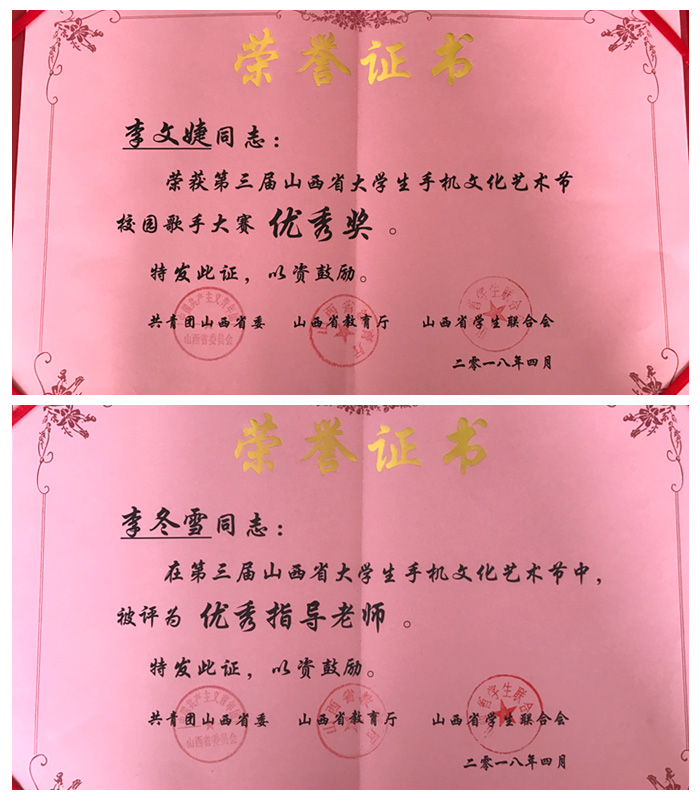 荣誉证书
李文婕同志：
荣获第三届山西省大学生手机文化艺术节
校园歌手大赛 优秀奖 。
特发此证，以资鼓励。
共青团山西省委 山西省教育厅 山西省学生联合会
山西省委员会
二零一八年四月
荣誉证书
李冬雪同志：
在第三届山西省大学生手机文化艺术节中，
被评为 优秀指导老师 。
特发此证，以资鼓励。
共青团山西省委 山西省教育厅 山西省学生联合会
山西省委员会
二零一八年四月